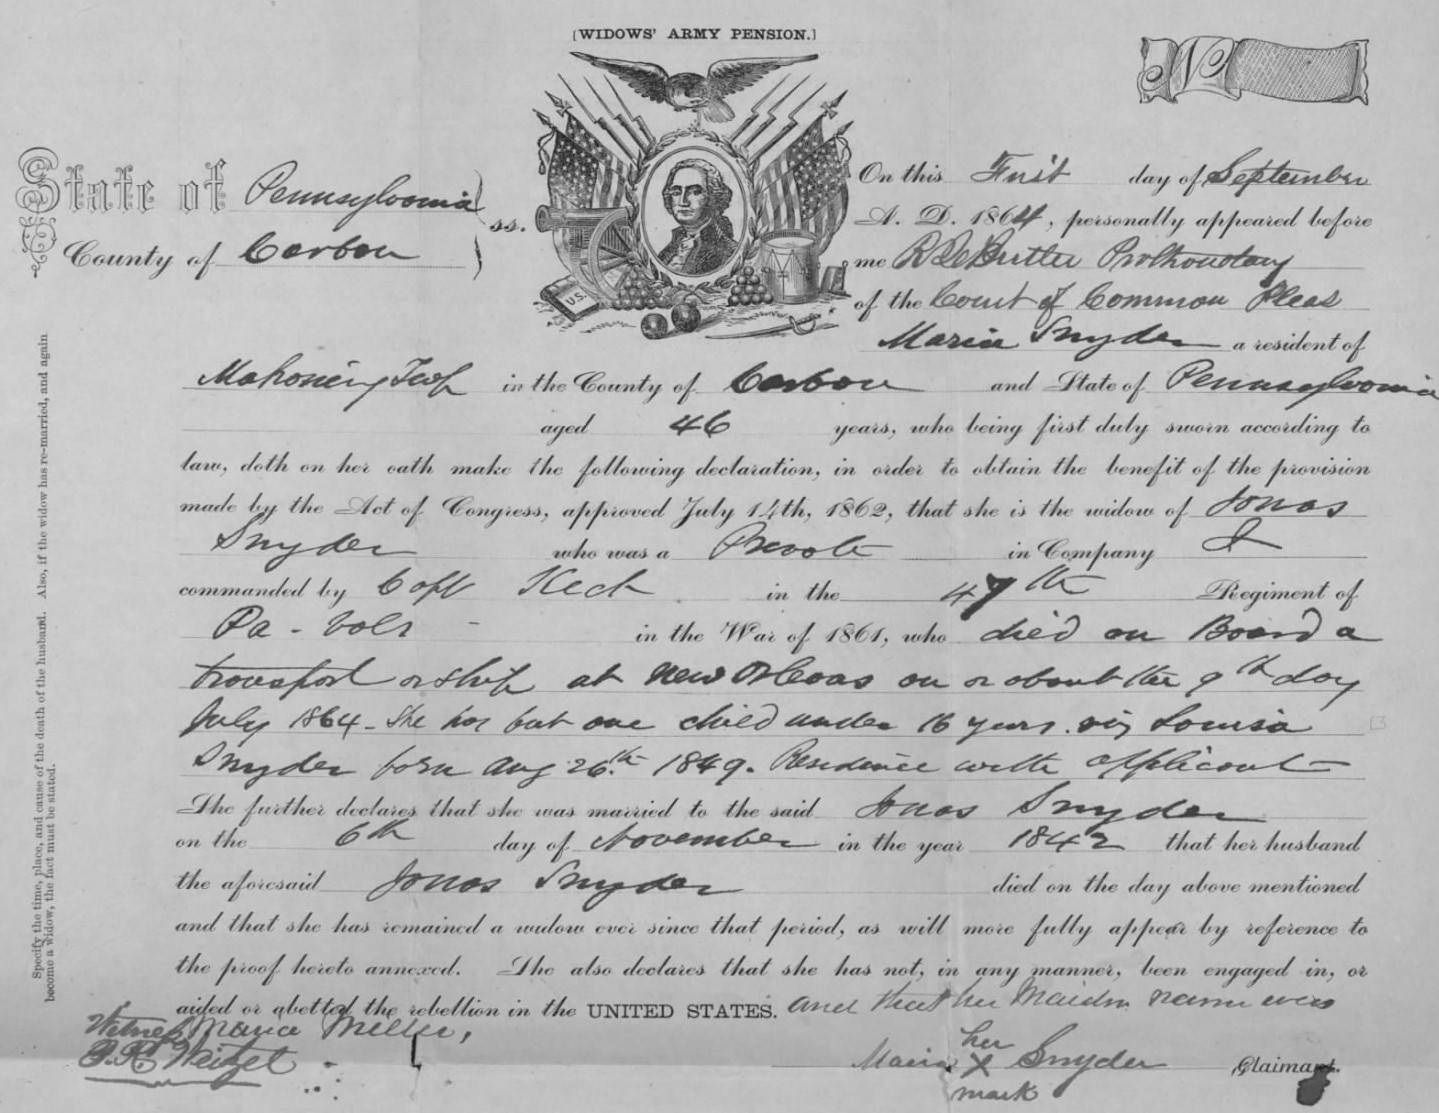 [WIDOWS' ARMY PENSION.]
No
State of Pennsylvania
County of Carbon
ss.
U.S.
On this First day of September
A. D. 1864, personally appeared before
me Butler Prothonotary
of the Court of Common Pleas
Maria Snyder a resident of
Mahoning Twp in the County of Carbon and State of Pennsylvania
aged 46 years, who being first duly sworn according to
law, doth on her oath make the following declaration, in order to obtain the benefit of the provision
made by the Act of Congress, approved July 14th, 1862, that she is the widow of Jonas
Snyder who was a Private in Company I
commanded by Capt Keck in the 47th Regiment of
Pa - Vols - in the War of 1861, who died on Board a
transport or ship at New Orleans on or about the 9th day
July 1864 - She has but one child under 16 years. viz Louisa
Snyder born Aug 26th 1849. Residence with applicant
She further declares that she was married to the said Jonas Snyder
on the 6th day of November in the year 1842 that her husband
the aforesaid Jonas Snyder died on the day above mentioned
and that she has remained a widow ever since that period, as will more fully appear by reference to
the proof hereto annexed. She also declares that she has not, in any manner, been engaged in, or
aided or abetted the rebellion in the UNITED STATES. and that her Maiden name was
Maria Miller,
Witness
Weitzel
her
Maria X Snyder Claimant.
mark
Specify the time, place, and cause of the death of the husband. Also, if the widow has re-married, and again
become a widow, the fact must be stated.